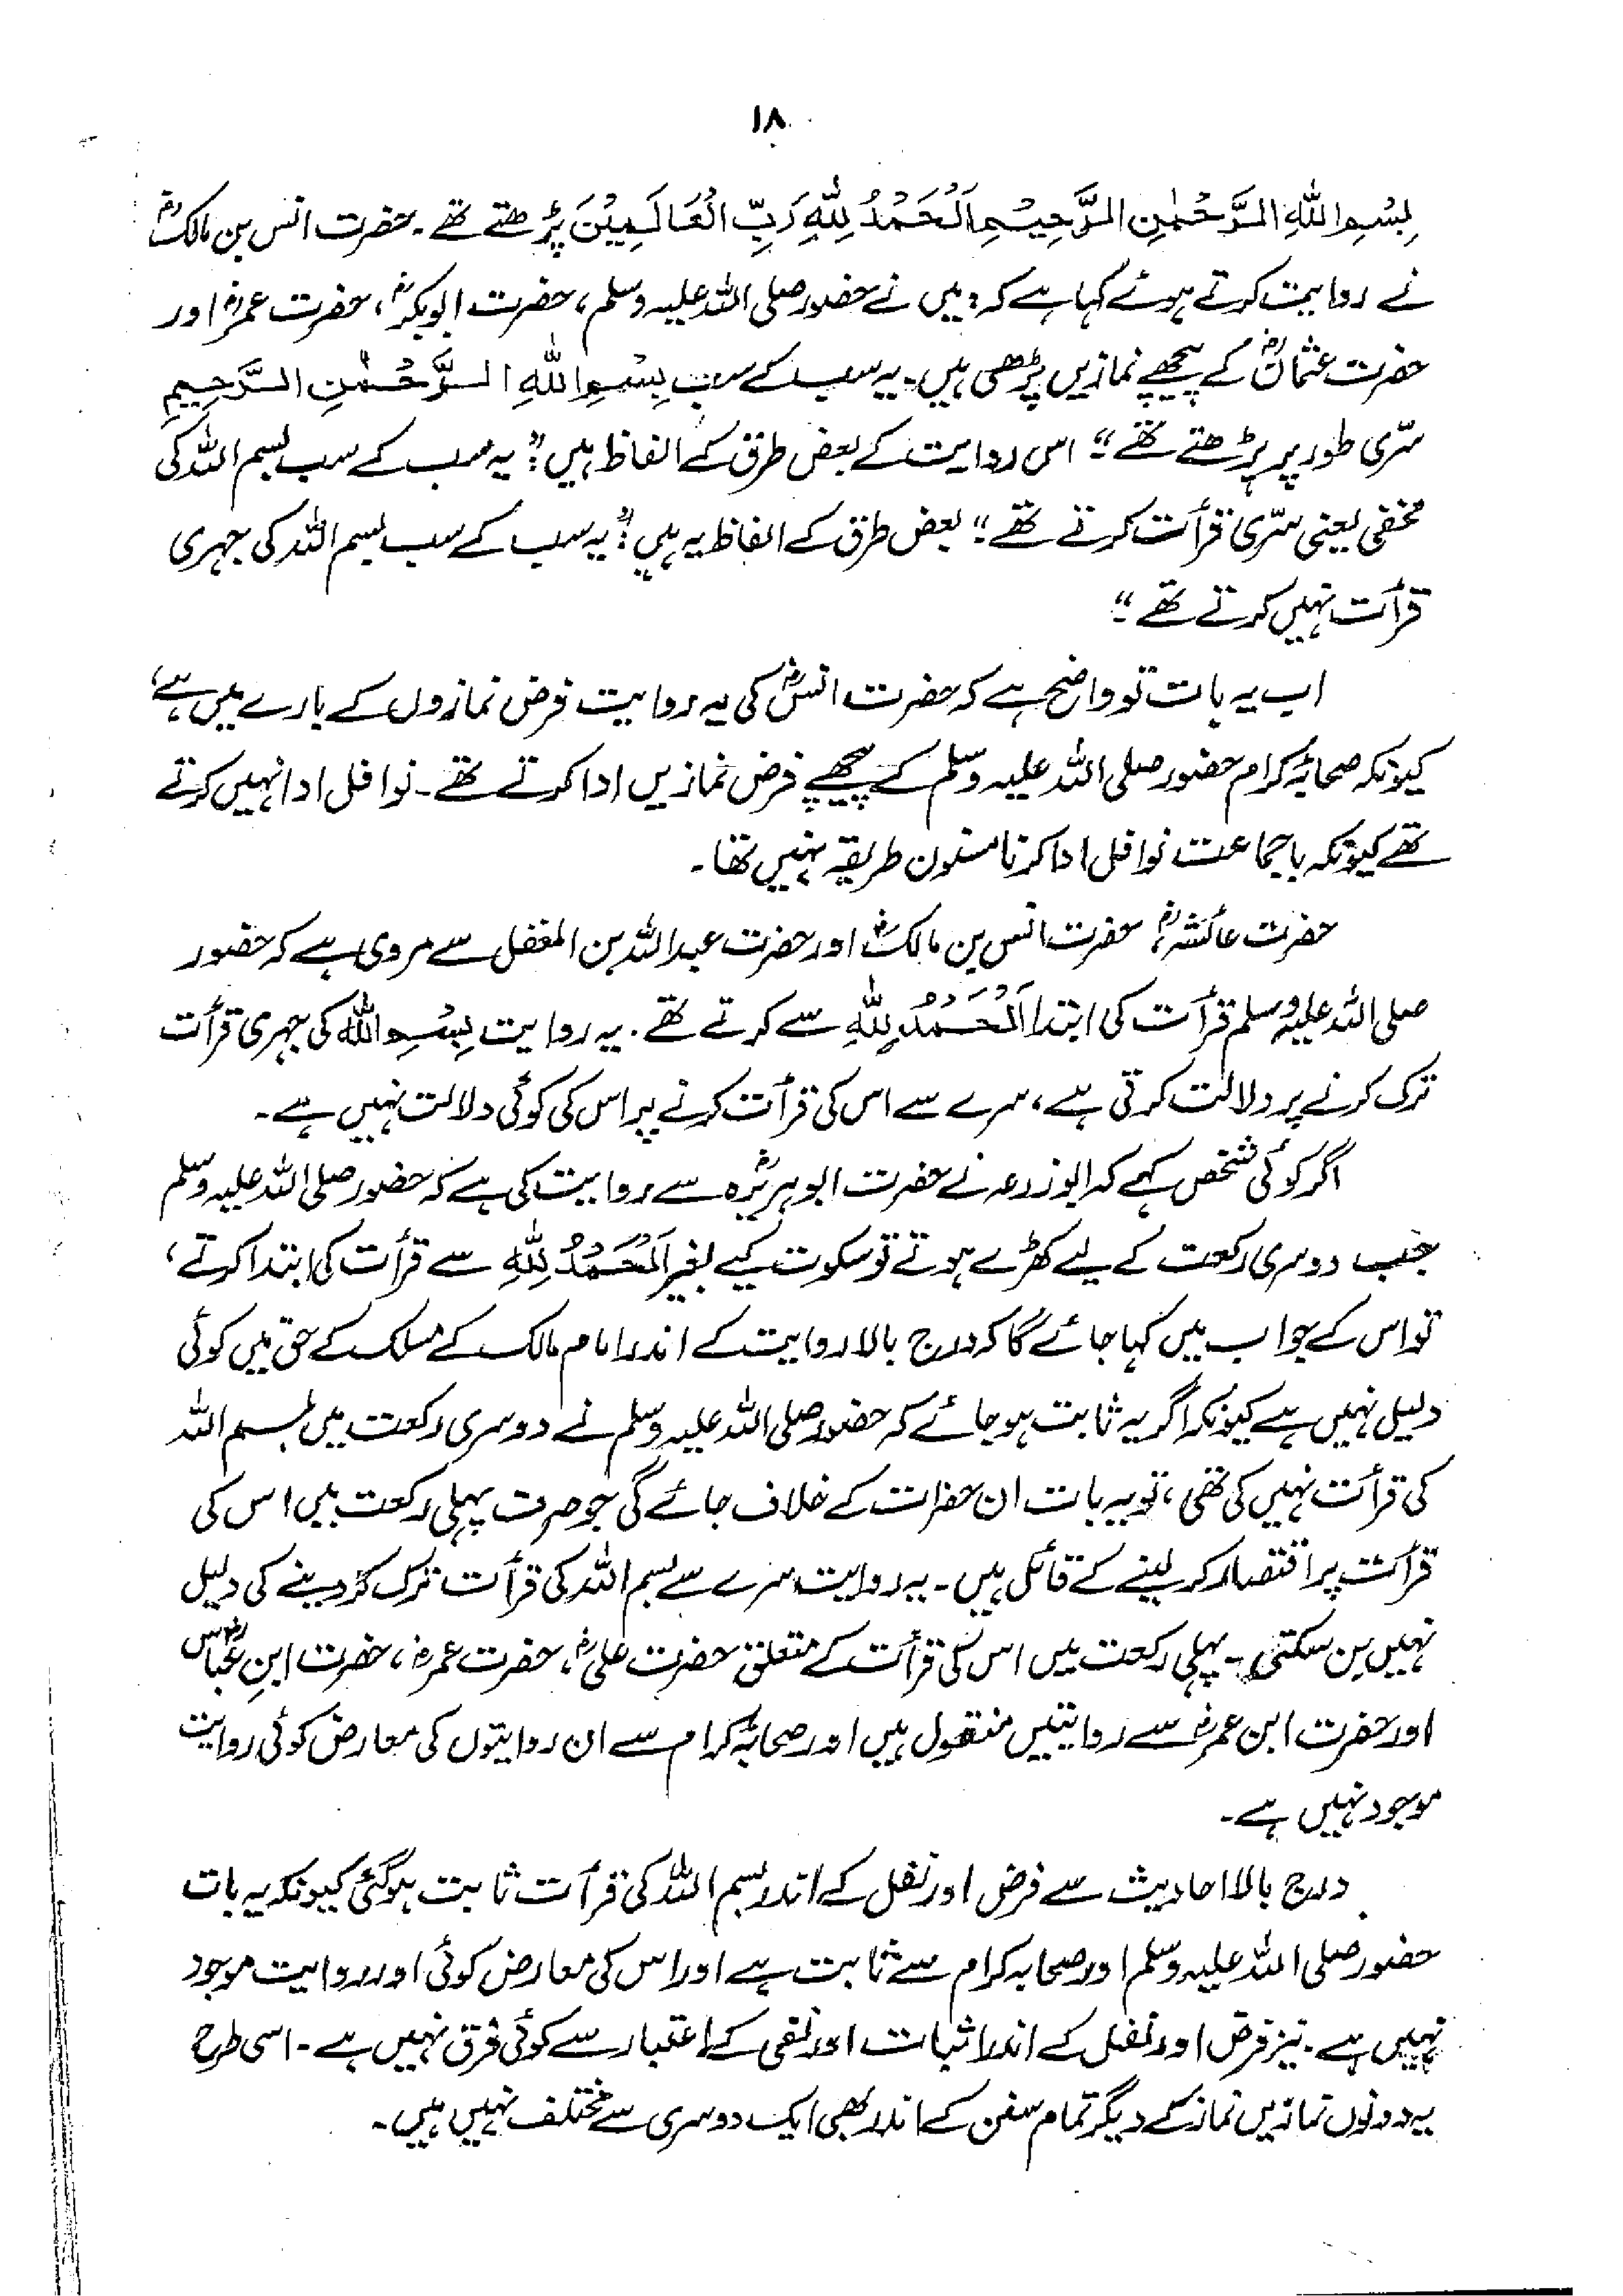 ۱۸
بِسْمِ اللّٰهِ الرَّحْمٰنِ الرَّحِيْمِ اَلْحَمْدُ لِلّٰهِ رَبِّ الْعَالَمِيْنَ پڑھتے تھے۔ حضرت انس بن مالکؓ
نے روایت کرتے ہوئے کہا ہے کہ: میں نے حضور صلی اللہ علیہ وسلم، حضرت ابوبکرؓ، حضرت عمرؓ اور
حضرت عثمانؓ کے پیچھے نمازیں پڑھی ہیں۔ یہ سب کے سب بِسْمِ اللّٰهِ الرَّحْمٰنِ الرَّحِيْمِ
سرّی طور پر پڑھتے تھے“ اس روایت کے بعض طرق کے الفاظ ہیں: ”یہ سب کے سب بسم اللہ کی
مخفی یعنی سرّی قرأت کرتے تھے“ بعض طرق کے الفاظ یہ ہیں: ”یہ سب کے سب بسم اللہ کی جہری
قرأت نہیں کرتے تھے“
اب یہ بات تو واضح ہے کہ حضرت انسؓ کی یہ روایت فرض نمازوں کے بارے میں ہے،
کیونکہ صحابۂ کرام حضور صلی اللہ علیہ وسلم کے پیچھے فرض نمازیں ادا کرتے تھے۔ نوافل ادا نہیں کرتے
تھے کیونکہ باجماعت نوافل ادا کرنا مسنون طریقہ نہیں تھا۔
حضرت عائشہؓ، حضرت انس بن مالکؓ اور حضرت عبداللہ بن المغفل سے مروی ہے کہ حضور
صلی اللہ علیہ وسلم قرأت کی ابتدا اَلْحَمْدُ لِلّٰهِ سے کرتے تھے۔ یہ روایت بِسْمِ اللّٰه کی جہری قرأت
ترک کرنے پر دلالت کرتی ہے، سرے سے اس کی قرأت کرنے پر اس کی کوئی دلالت نہیں ہے۔
اگر کوئی شخص کہے کہ ابوزرعہ نے حضرت ابوہریرؓہ سے روایت کی ہے کہ حضور صلی اللہ علیہ وسلم
جب دوسری رکعت کے لیے کھڑے ہوتے تو سکوت کیے بغیر اَلْحَمْدُ لِلّٰهِ سے قرأت کی ابتدا کرتے،
تو اس کے جواب میں کہا جائے گا کہ درج بالا روایت کے اندر امام مالک کے مسلک کے حق میں کوئی
دلیل نہیں ہے کیونکہ اگر یہ ثابت ہو جائے کہ حضور صلی اللہ علیہ وسلم نے دوسری رکعت میں بسم اللہ
کی قرأت نہیں کی تھی، تو یہ بات ان حضرات کے خلاف جائے گی جو صرف پہلی رکعت میں اس کی
قرأت پر اقتصار کر لینے کے قائل ہیں۔ یہ روایت سرے سے بسم اللہ کی قرأت ترک کر دینے کی دلیل
نہیں بن سکتی۔ پہلی رکعت میں اس کی قرأت کے متعلق حضرت علیؓ، حضرت عمرؓ، حضرت ابنِ عباسؓ
اور حضرت ابن عمرؓ سے روایتیں منقول ہیں اور صحابۂ کرام سے ان روایتوں کی معارض کوئی روایت
موجود نہیں ہے۔
درج بالا احادیث سے فرض اور نفل کے اندر بسم اللہ کی قرأت ثابت ہو گئی کیونکہ یہ بات
حضور صلی اللہ علیہ وسلم اور صحابہ کرام سے ثابت ہے اور اس کی معارض کوئی اور روایت موجود
نہیں ہے۔ نیز فرض اور نفل کے اندر اثبات اور نفی کے اعتبار سے کوئی فرق نہیں ہے۔ اسی طرح
یہ دونوں نمازیں نماز کے دیگر تمام سنن کے اندر بھی ایک دوسری سے مختلف نہیں ہیں۔